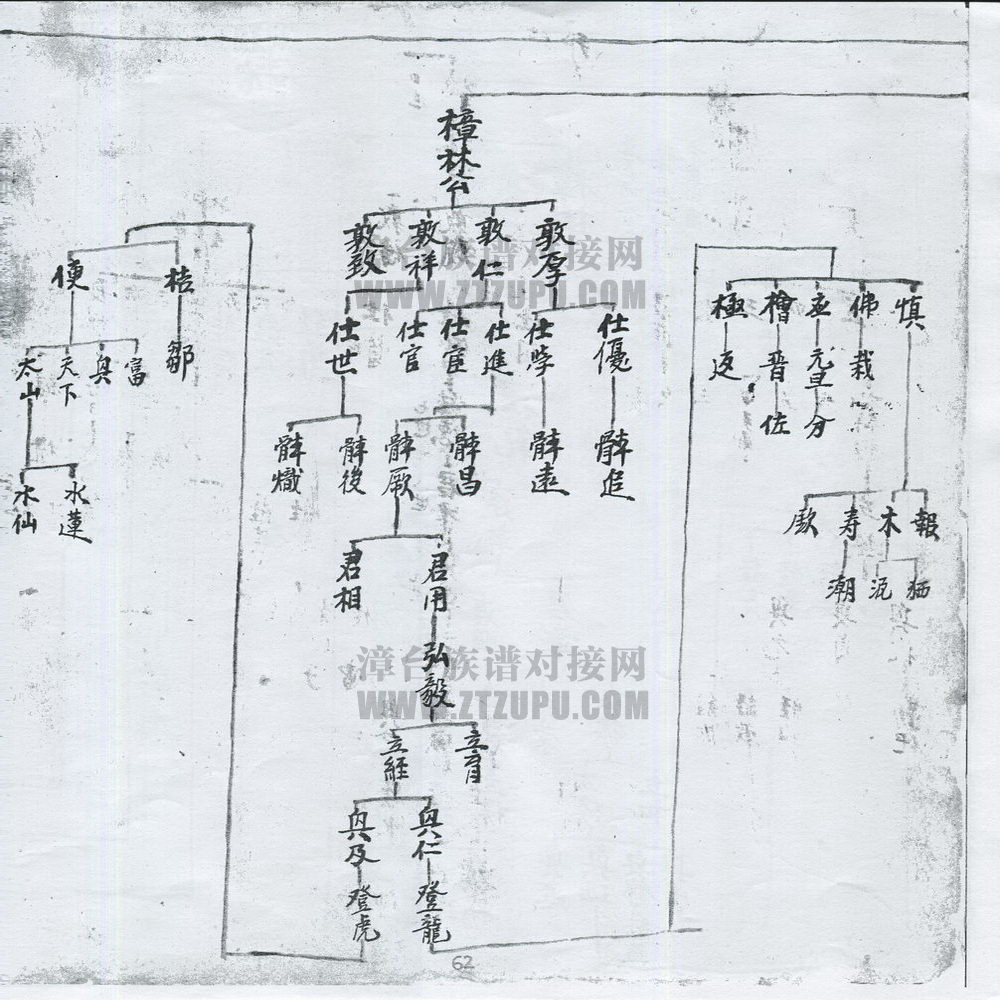 樟林公
敦厚
敦仁
敦祥
敦致
漳台族谱对接网
WWW.ZTZUPU.COM
仕優
仕學
仕進
仕宦
仕官
仕世
追
遠
昌
厥
後
熾
君用
君相
弘毅
漳台族谱对接网
WWW.ZTZUPU.COM
立育
立經
興仁
興及
登龍
登虎
慎
佛
檜
極
栽
元旦
分
晋
佐
返
報
木
寿
潮
桔
便
鄒
富
興
天下
太山
水蓮
水仙
62